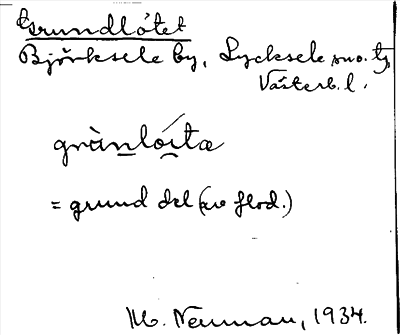 Grundlåtet
Björksele by, Lycksele sno. tg
Västerb. l.
grànlóitæ
= grund del (av flod.)
M. Neuman, 1934.